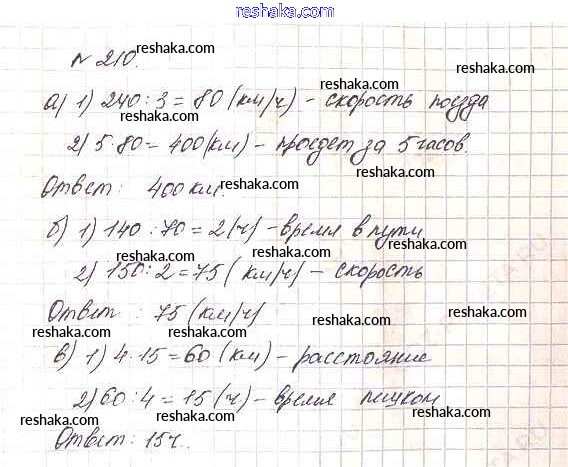 reshaka.com
№ 210. reshaka.com
reshaka.com reshaka.com
а) 1) 240 : 3 = 80 (км/ч) - скорость поезда
reshaka.com reshaka.com
2) 5 · 80 = 400 (км) - проедет за 5 часов.
reshaka.com
Ответ: 400 км. reshaka.com
reshaka.com
б) 1) 140 : 70 = 2 (ч) - время в пути
reshaka.com reshaka.com
2) 150 : 2 = 75 (км/ч) - скорость
reshaka.com
Ответ : 75 (км/ч)
reshaka.com reshaka.com
в) 1) 4 · 15 = 60 (км) - расстояние
reshaka.com
2) 60 : 4 = 15 (ч) - время пешком
reshaka.com reshaka.com
Ответ: 15 ч.
reshaka.com
reshaka.com